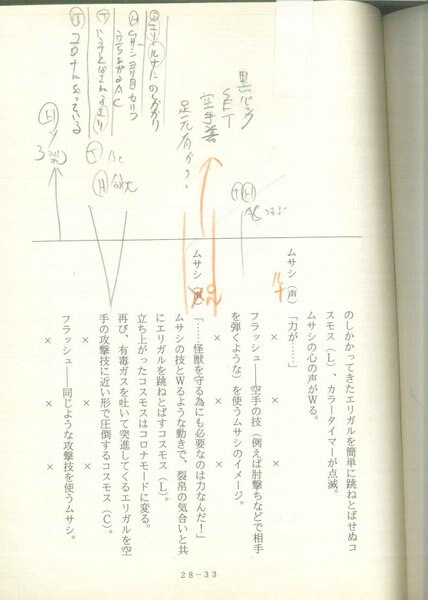 のしかかってきたエリガルを簡単に跳ねとばせぬコ
スモス（L）、カラータイマーが点滅。
ムサシの心の声がWる。
ムサシ（声）
「力が……」
×　×　×
フラッシュ――空手の技（例えば肘撃ちなどで相手
を弾くような）を使うムサシのイメージ。
×　×　×
ムサシ
「……怪獣を守る為にも必要なのは力なんだ！」
ムサシの技とWるような動きで、裂帛の気合いと共
にエリガルを跳ねとばすコスモス（L）。
立ち上がったコスモスはコロナモードに変る。
再び、有毒ガスを吐いて突進してくるエリガルを空
手の攻撃技に近い形で圧倒するコスモス（C）。
×　×　×
フラッシュ――同じような攻撃技を使うムサシ。
×　×　×
黒バック
SET
空手着
AC
コロナになっている
28-33